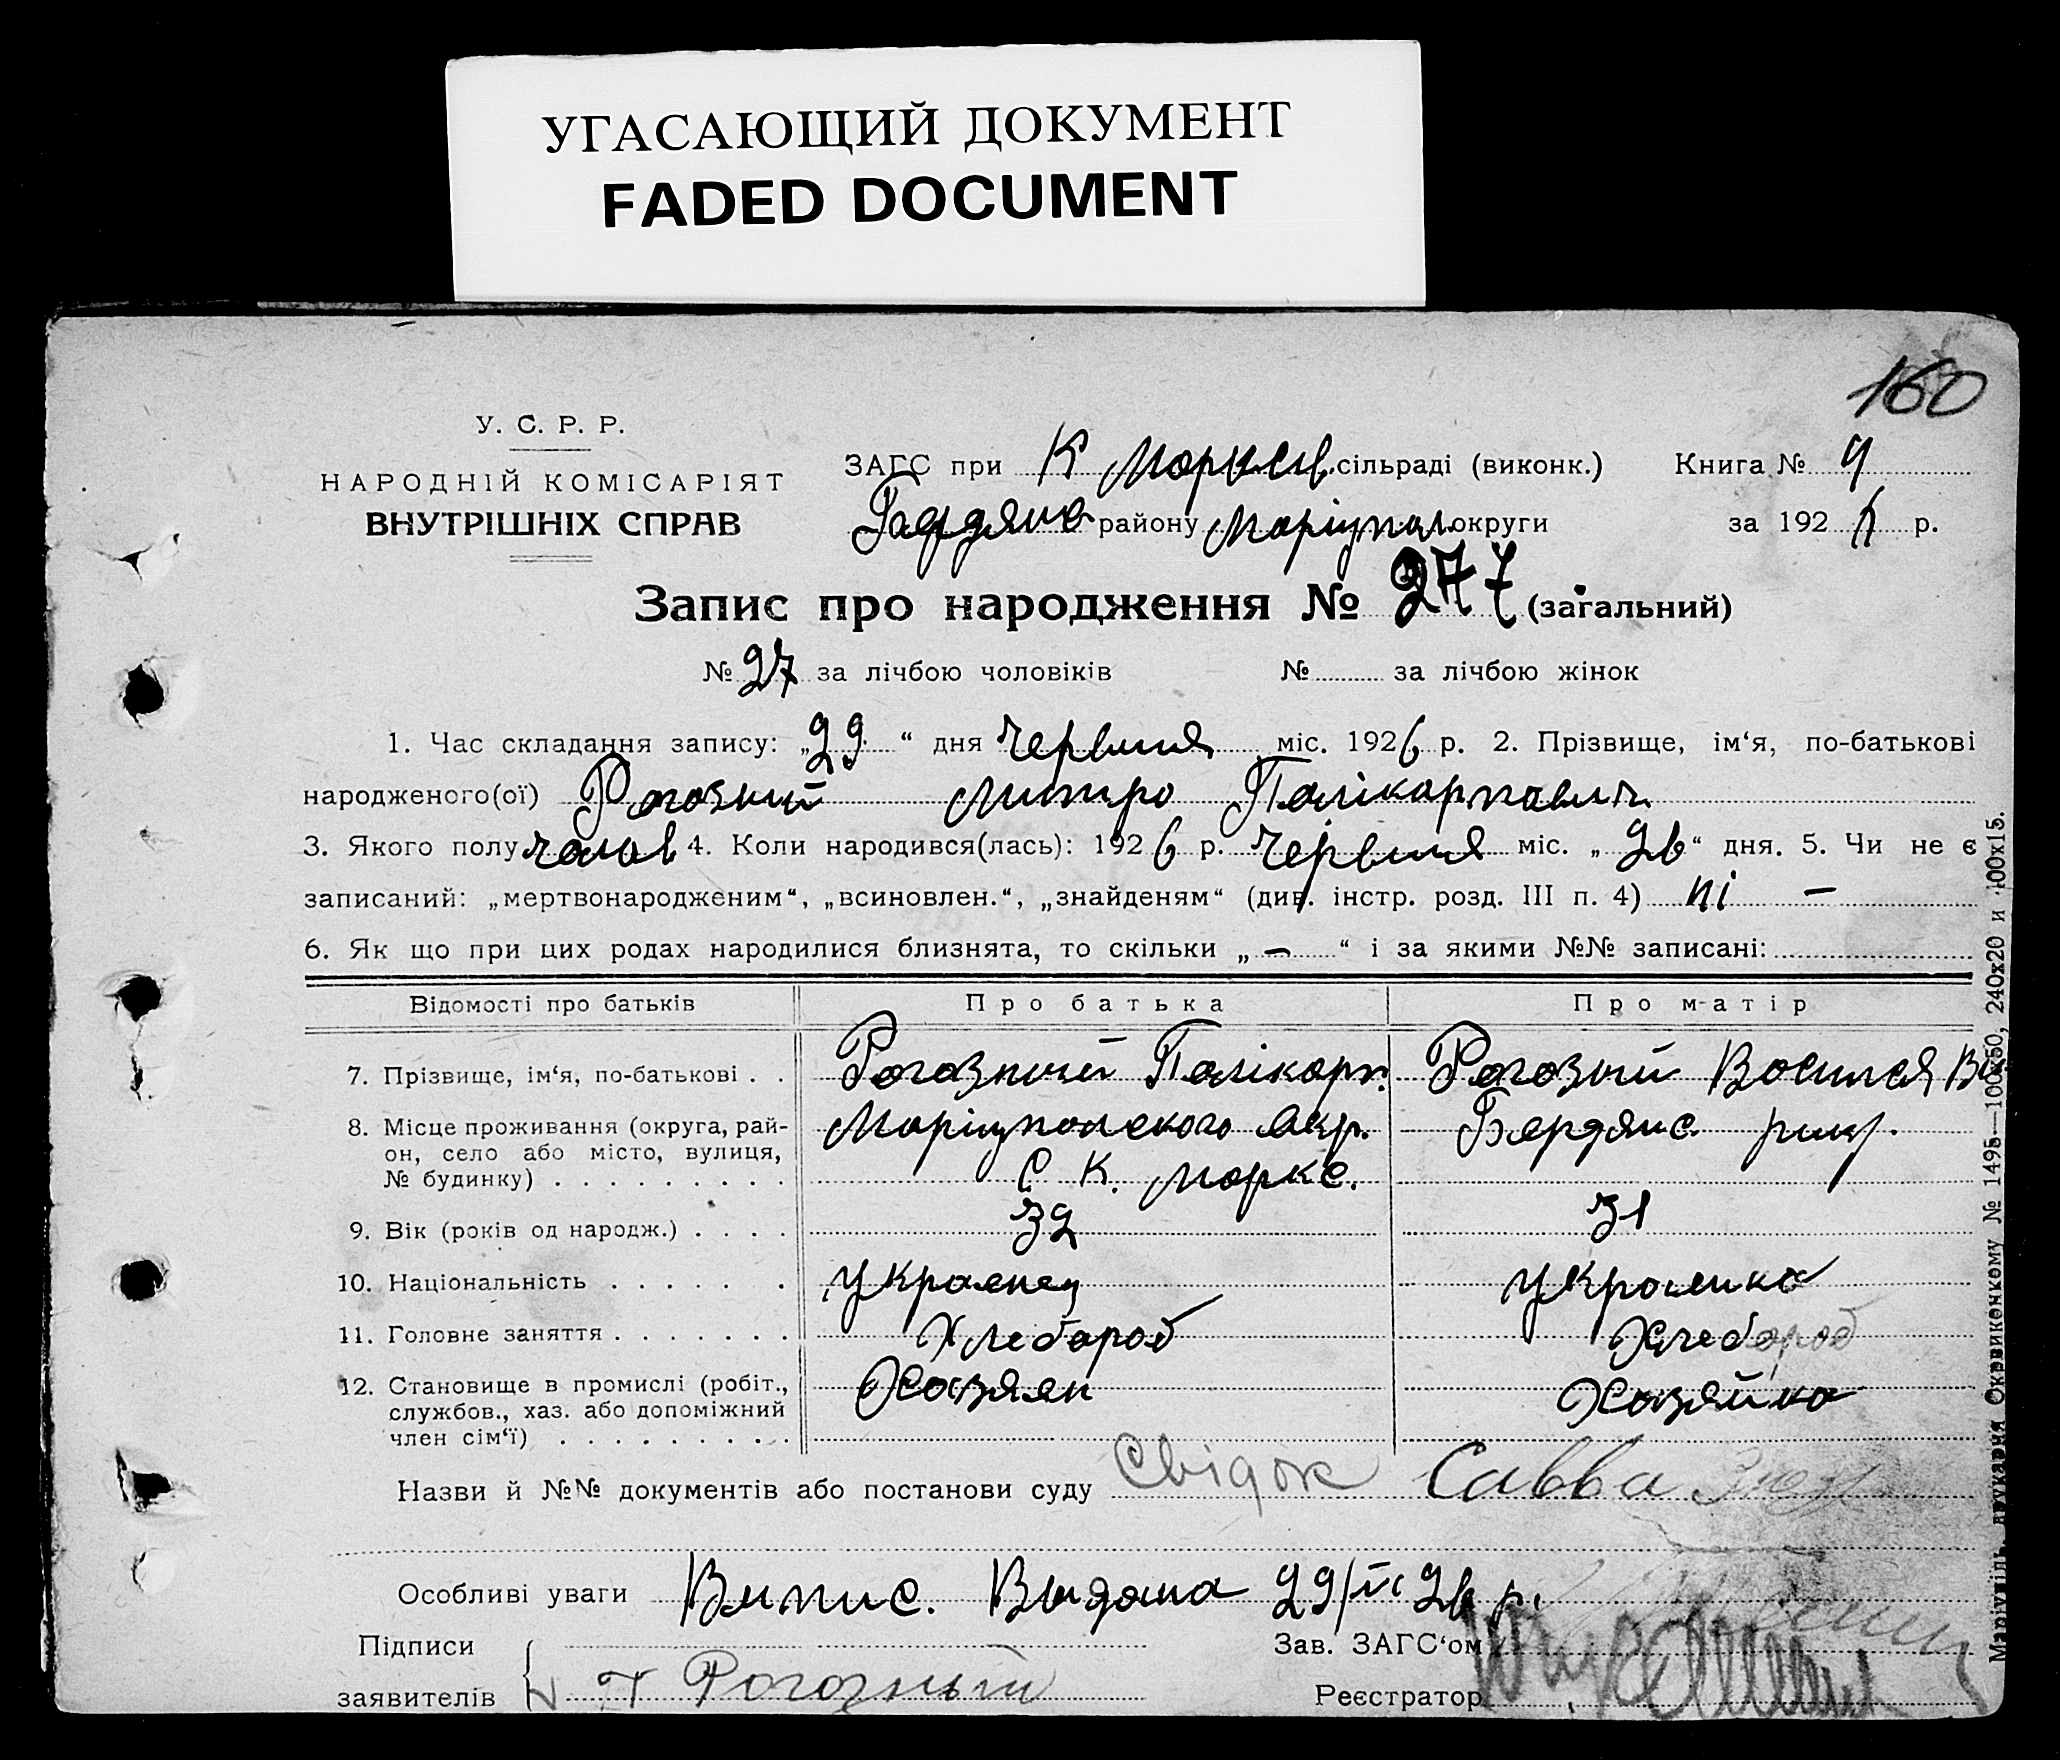 УГАСАЮЩИЙ ДОКУМЕНТ
FADED DOCUMENT
160
У. С. Р. Р.
НАРОДНІЙ КОМІСАРІЯТ
ВНУТРІШНІХ СПРАВ
ЗАГС при К сільраді (виконк.) Книга №
району Маріупол. округи за 192 р.
Запис про народження № 277 (загальний)
№ 27 за лічбою чоловіків № за лічбою жінок
1. Час складання запису: „29“ дня червня міс. 1926 р. 2. Прізвище, ім‘я, по-батькові
народженого(ої) Рогозний Митро Палікарпавич
3. Якого полу чолов 4. Коли народився(лась): 1926 р. червня міс. „26“ дня. 5. Чи не є
записаний: „мертвонародженим“, „всиновлен.“, „знайденям“ (див. інстр. розд. III п. 4) ні —
6. Як що при цих родах народилися близнята, то скільки „—“ і за якими №№ записані:
Відомості про батьків Про батька Про матір
7. Прізвище, ім‘я, по-батькові . . Рогозний Палікарп. Рогозний Восился
8. Місце проживання (округа, рай- Маріупольского окр. Бердянс. рику.
он, село або місто, вулиця,
№ будинку) . . . . . . . . . С К. Маркс.
9. Вік (років од народж.) . . . . 32 31
10. Національність . . . . . . украенец украинка
11. Головне заняття . . . . . . . Хлебароб Хлебароб
12. Становище в промислі (робіт., Хазяен Хазяйка
службов., хаз. або допоміжний
член сім‘ї) . . . . . . . . . .
Назви й №№ документів або постанови суду Свідок Савва
Особливі уваги Випис. Выдана 29/VI 26 р.
Підписи Зав. ЗАГС‘ом
заявителів П Рогозный Реєстратор
Маріупіль, друкарня Окрвиконкому № 1495—100х50, 240х20 и 400х15.